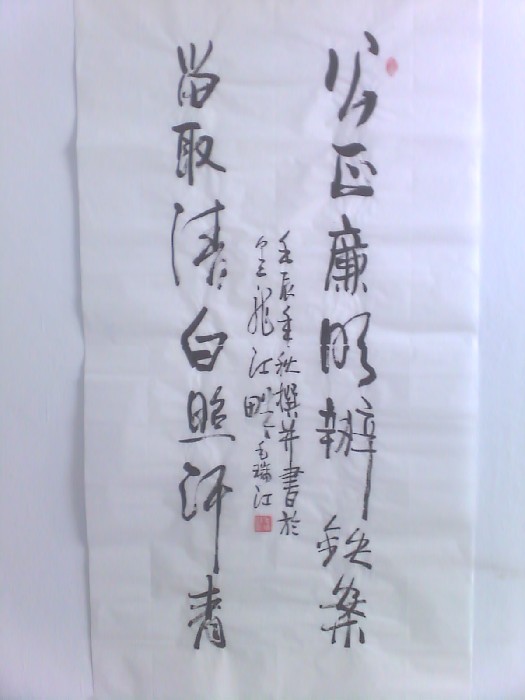 公正廉明辨铁案
留取清白照汗青
壬辰年秋撰并書於
黑龙江畔 毛瑞江